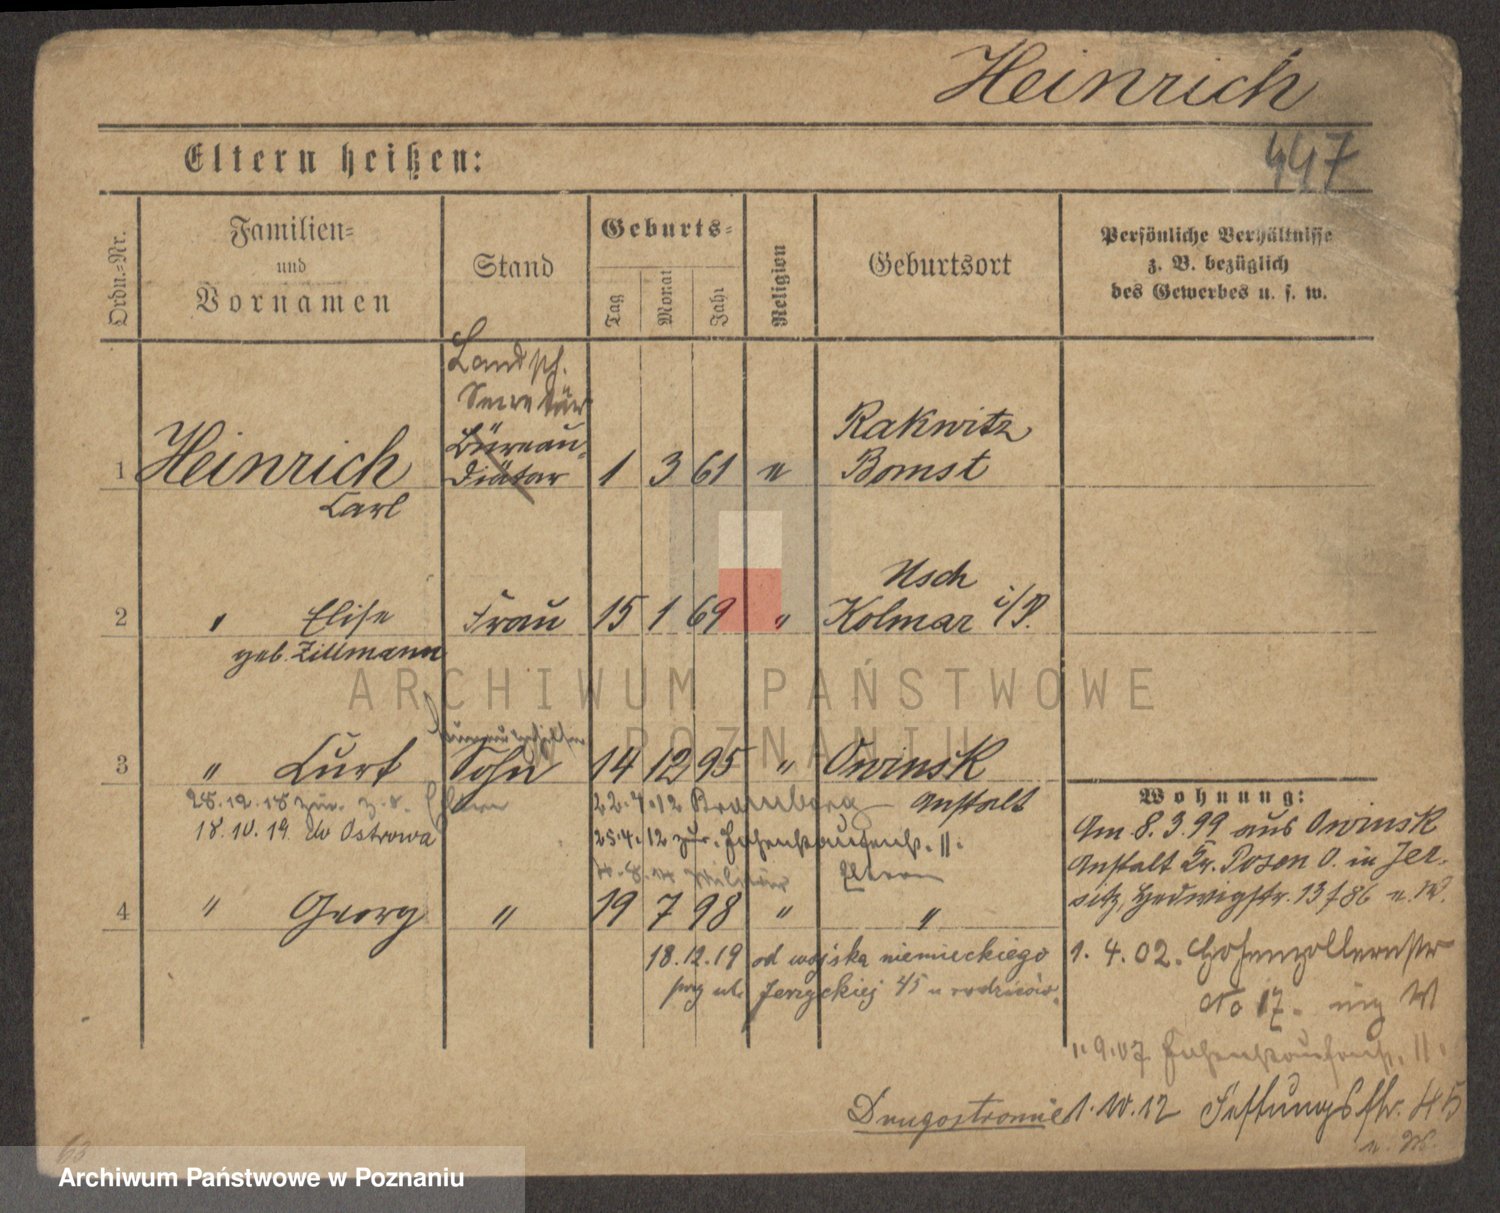 Heinrich
447
Eltern heißen:
Ordn.=Nr.
Familien=
und
Vornamen
Stand
Geburts=
Tag
Monat
Jahr
Religion
Geburtsort
Persönliche Verhältnisse
z. B. bezüglich
des Gewerbes u. s. w.
Landsch.
Secretär
1 Heinrich Büreau- Diätar 1 3 61 Rakwitz
Carl Bomst
2 " Elise Frau 15 1 69 " Usch
geb. Zillmann Kolmar i/P.
3 " Curt Sohn 14 12 95 " Owinsk
28.12.18 zur. Eltern 22.4.12 Bromberg Anstalt
18.10.19 do Ostrowa 25.4.12 zur. 11.
Militär Eltern
4 " Georg " 19 7 98 " "
18.12.19 od wojska niemieckiego
przy ul. Jerzyckiej 45 u rodziców.
Wohnung:
Am 8.3.99 aus Owinsk
Anstalt Kr. Posen O. in Jer-
sitz, Hedwigstr. 13
1.4.02. Hohenzollernstr
No 17.
11.
Drugostronnie 1.10.12 Festungsstr. 45
ARCHIWUM PAŃSTWOWE
W POZNANIU
Archiwum Państwowe w Poznaniu